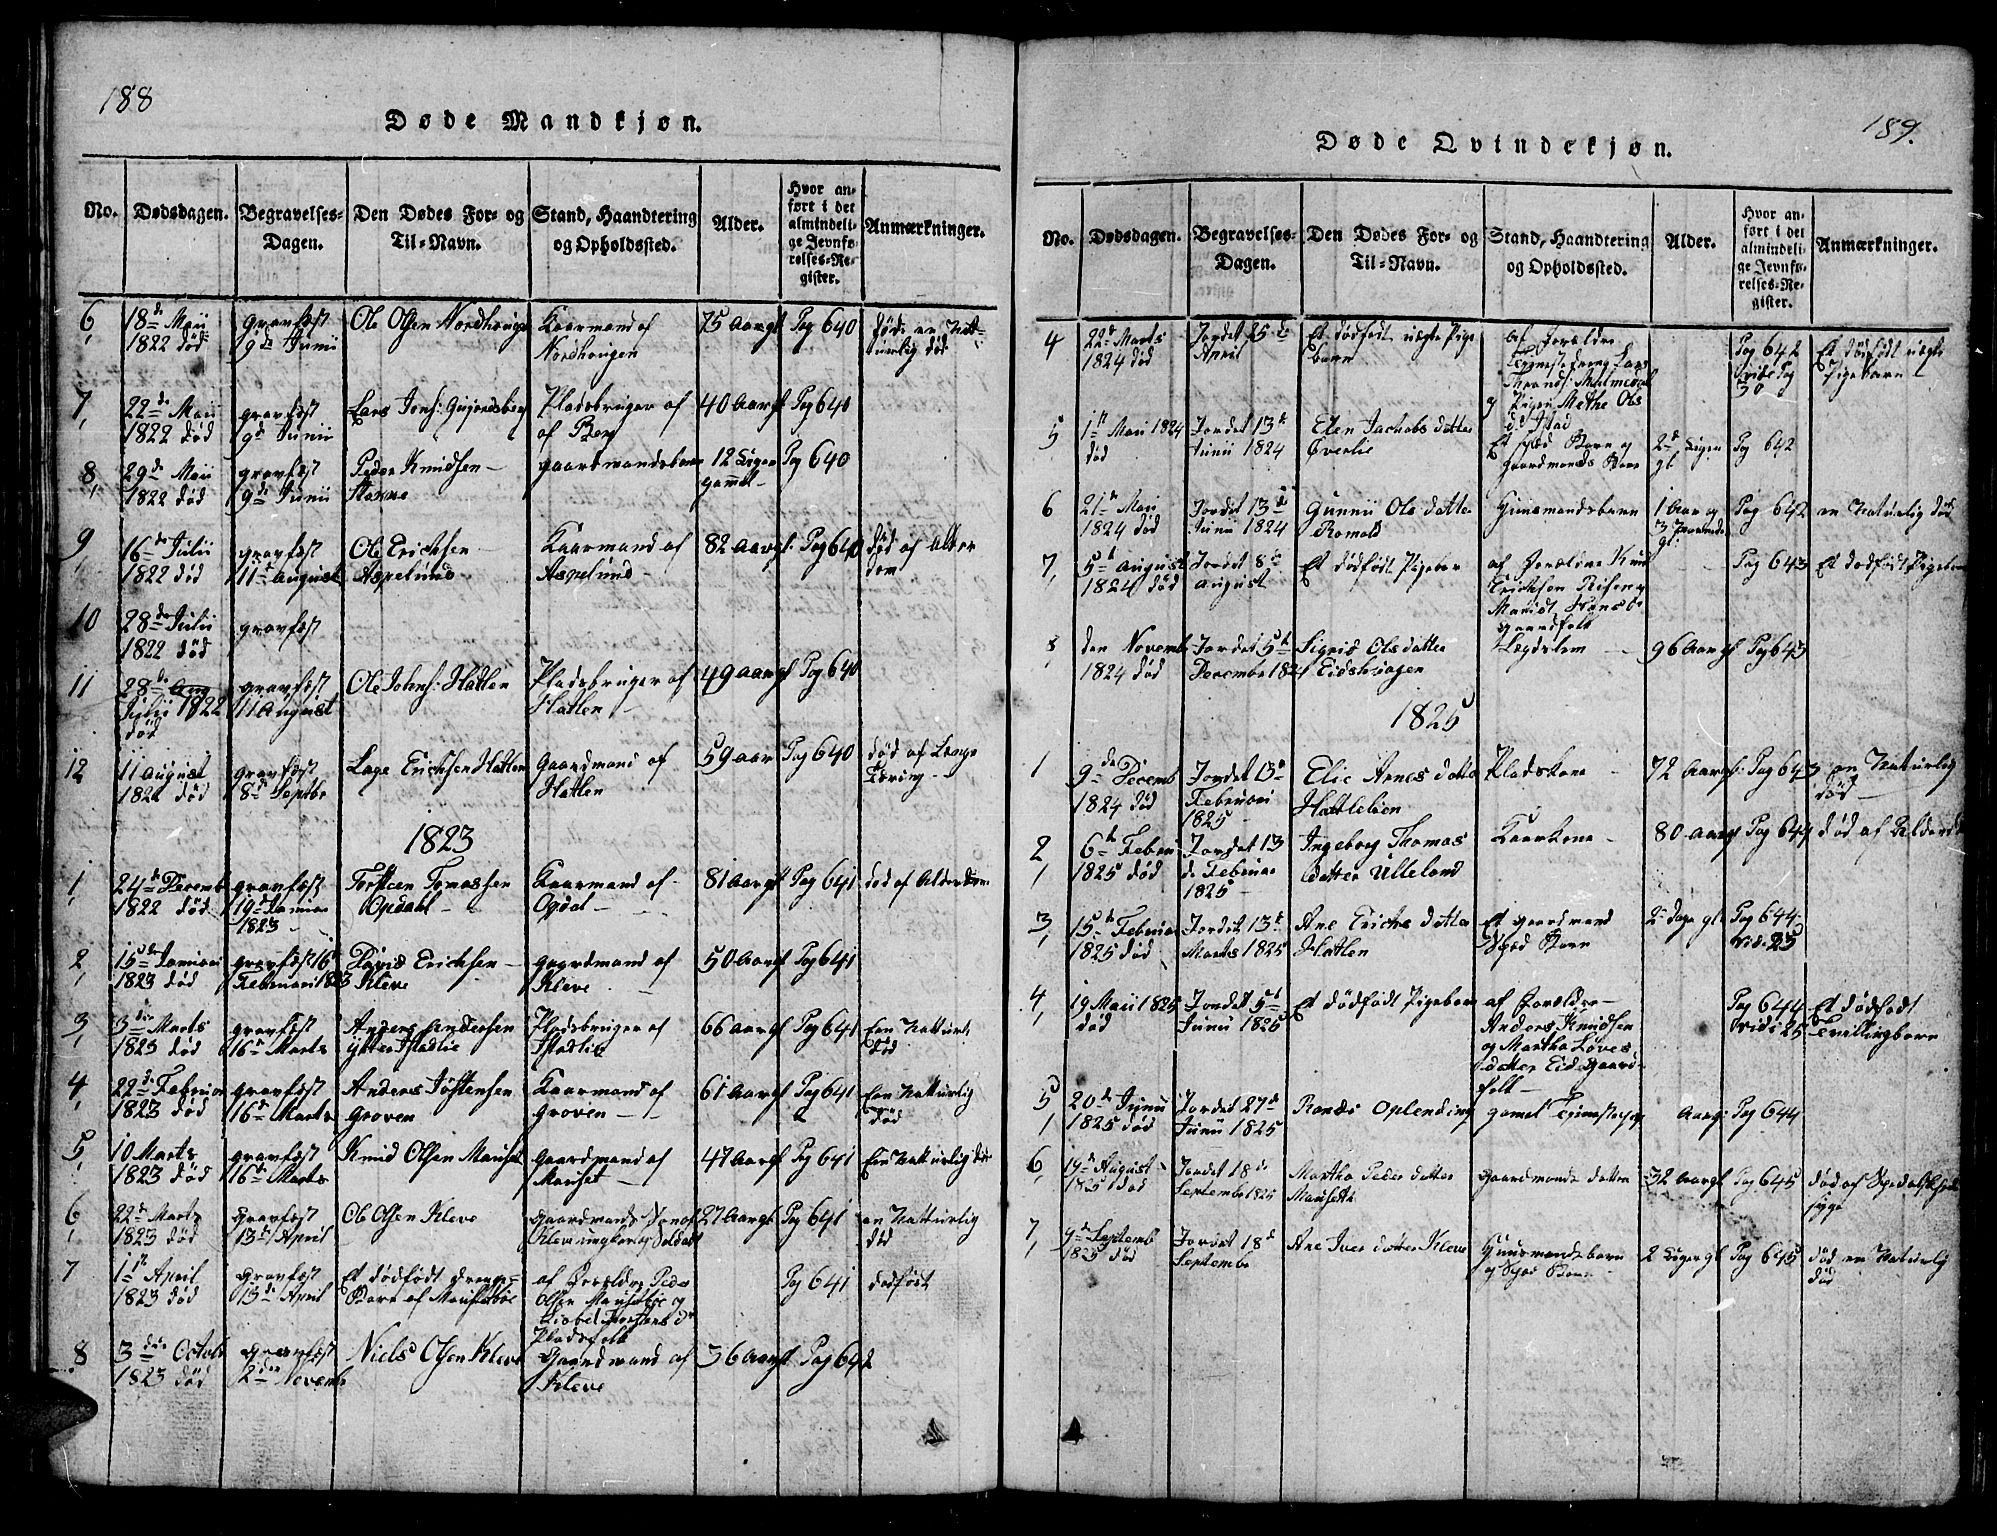 188
Døde Mandkjøn.
No. Dødsdagen. Begravelses-Dagen. Den Dødes For- og Til-Navn. Stand, Haandtering og Opholdssted. Alder. Hvor anført i det almindelige Jevnførelses-Register. Anmærkninger.
6, 18de Maii gravfæst Ole Olsen Nordhougen Kaarmand af 75 Aargl Pag 640 døde en Nat-
1822 død 9de Junii Nordhougen turlig død
7, 22de Maii gravfæst Lars Jons: Pladsbruger af 40 Aargl Pag 640
1822 død 9de Junii af Berg
8, 29de Maii gravfæst Peder Knudsen gaardmandsbarn 12 Uger Pag 640
1822 død 9de Junii gammel
9, 16de Julii gravfæst Ole Erichsen Kaarmand af 82 Aargl: Pag 640 død af Alder
1822 død 11te August Aspelund Aspelund dom
10 28de Julii gravfæst
1822 død
11 28de gravfæst Ole Johns: Hatlen Pladsbruger af 49 Aargl Pag 640
Julii 1822 11 August Hatlen
død
12 11 August gravfæst Lage Erichsen Hatlen Gaardmand af 59 Aar Pag 640 død af
1822 død 8de Septbr Hatlen
1823
1, 24de Decemb gravfæst Torsteen Tomassen Kaarmand af 81 Aargl Pag 641 død af Alderdom
1822 død 19de Januar Opdahl Opdal
1823
2, 15de Januari gravfæst 16 Erichsen gaardmand af 50 Aargl Pag 641
1823 død Februari 1823 Kleve Kleve
3, 3die Marts gravfæst Anders Andersen Pladsbruger af 66 Aargl Pag 641 Een Natturl:
1823 død 16de Marts ytter Istadlie Istadlie død
4, 22de Februari gravfæst Anders Jostensen Kaarmand af 61 Aargl Pag 641 Een Natturlig
1823 død 16de Marts Groven Groven død
5, 10 Marts gravfæst Knud Olsen Mauset Gaardmand af 47 Aargl Pag 641 Een Natturlig død
1823 død 16de Marts Mauset
6, 22de Marts Gravfæst Ole Olsen Kleve Gaardmands Søn af 27 Aargl Pag 641 en Natturlig
1823 død 13de April Kleve ungkarl og Soldat død
7 1ste April Gravfæst Et dødfødt drenge- af Forældre Peder Pag 641 dødfødt
1823 død 13de April Barn af Olsen
Pladsfolk
8 3die Octob Gravfæst Niels Olsen Kleve Gaardmand af 36 Aargl Pag 642
1823 død 2den Novemb Kleve
189.
Døde Qvindekjøn.
No. Dødsdagen. Begravelses-Dagen. Den Dødes For- og Til-Navn. Stand, Haandtering og Opholdssted. Alder. Hvor anført i det almindelige Jevnførelses-Register. Anmærkninger.
4 22de Marts Jordet 25de Et dødfødt uægte Pige af Forældre Pag 642 Et dødfødt uægte
1824 død April barn Pigebarn
30
5, 1ste Maii 1824 Jordet 13de Elen Jachobs datter Et spæd Barn og 2de Uger Pag 642
død Junii 1824 Øverlie Gaardmands Barn gl
6 21de Maii Jordet 13de Gunnii Ols datter Huusmandsbarn 1 Aar og Pag 642 en Naturlig død
1824 død Junii 1824 3 gl:
7, 5te August Jordet 8de Et dødfødt Pigebar af Forældre Knud Pag 643 Et dødfødt Pigebarn
1824 død August Erichsen
gaardfolk
8 den Novemb Jordet 5te Sigrid Olsdatter Legdslem 96 Aargl Pag 643
1824 død December 1824 Eidsvaagen
1825
1 9de Decemb Jordet 13de Elie Arnes datter Pladskone 72 Aargl: Pag 643 en Naturlig
1824 død Februari Hattlelien død
1825
2, 6te Februar Jordet 13 Ingeborg Thomas Kaarkone 80 Aargl Pag 644 død af Alderd
1825 død de Februar datter Ulleland
1825
3, 15de Februar Jordet 13de Ane Erichs datter Et gaardmand 2de Dage gl Pag 644
1825 død Marts 1825 Hatlen spæd Barn vide 25
4, 19 Maii 1825 Jordet 5te Et dødfødt Pigebarn af Forældre Pag 644 Et dødfødt
død Junii 1825 Anders Knudsen vide 25 Tvillingbarn
og Martha
datter Eide Gaard-
folk
5, 20de Junii Jordet 27de gamel Aargl: Pag 644
1825 død Junii 1825
6, 19de August Jordet 18de Martha Peders datter Gaardmands datter 32 Aargl Pag 645 død af Spedalskheds
1825 død Septembr 1825 Mausethe syge
7, 9de Septemb Jordet 18de Ane Iver datter Kleve Huusmandsbarn 2 Uger gl Pag 645 død en Naturlig
1825 død Septembr og Spæd Barn død